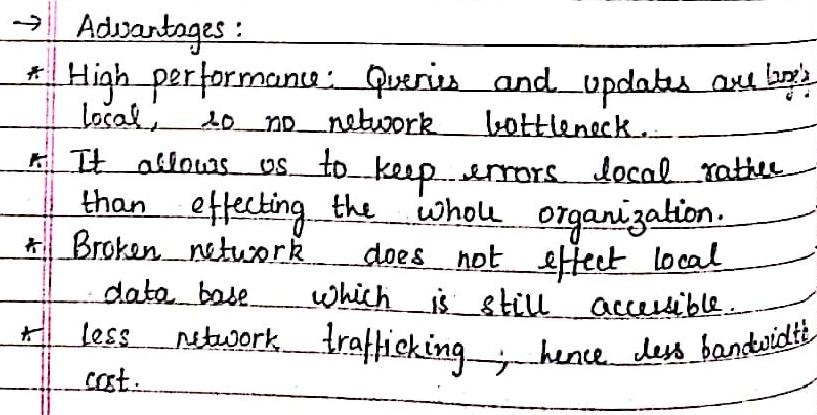 → Advantages :
* High performance: Queries and updates are
local, so no network bottleneck.
* It allows us to keep errors local rather
than effecting the whole organization.
* Broken network does not effect local
data base which is still accessible.
* less network trafficking ; hence less bandwidth
cost.